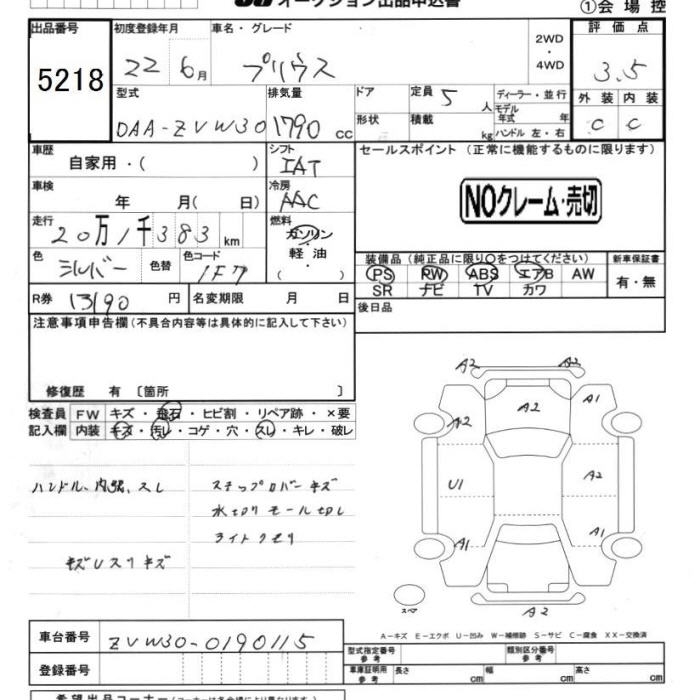 オークション出品申込書
①会場控
出品番号 初度登録年月 車名・グレード 2WD ・ 4WD 評価点
5218 22 6月 プリウス 3.5
型式 排気量 ドア 定員 5 人 ディーラー・並行 外装 内装
DAA-ZVW30 1790 cc 形状 積載 kg モデル年式 年 ハンドル 左・右 C C
車歴 自家用・( ) シフト IAT セールスポイント (正常に機能するものに限ります)
車検 年 月( 日) 冷房 AAC
NOクレーム・売切
走行 20万1千383 km 燃料 ガソリン・軽油・( )
色 シルバー 色替 色コード 1F7
装備品 (純正品に限り○をつけてください) 新車保証書
PS PW ABS エアB AW 有・無
SR ナビ TV カワ
R券 13190 円 名変期限 月 日 後日品
注意事項申告欄(不具合内容等は具体的に記入して下さい)
修復歴 有 〔箇所 〕
検査員 FW キズ・飛石・ヒビ割・リペア跡・×要
記入欄 内装 キズ・汚レ・コゲ・穴・スレ・キレ・破レ
ハンドル、内張、スレ ステップカバーキズ
水切りモール切レ
ライトクモリ
キズUスリキズ
A2 A2
A2 A2 A1
U1 A2
A1 A1
スペア A2
A-キズ E-エクボ U-凹み W-補修跡 S-サビ C-腐食 XX-交換済
車台番号 ZVW30-0190115
型式指定番号 参考 類別区分番号 参考
登録番号 車庫証明用 参考 長さ cm 幅 cm 高さ cm
希望出品コーナー